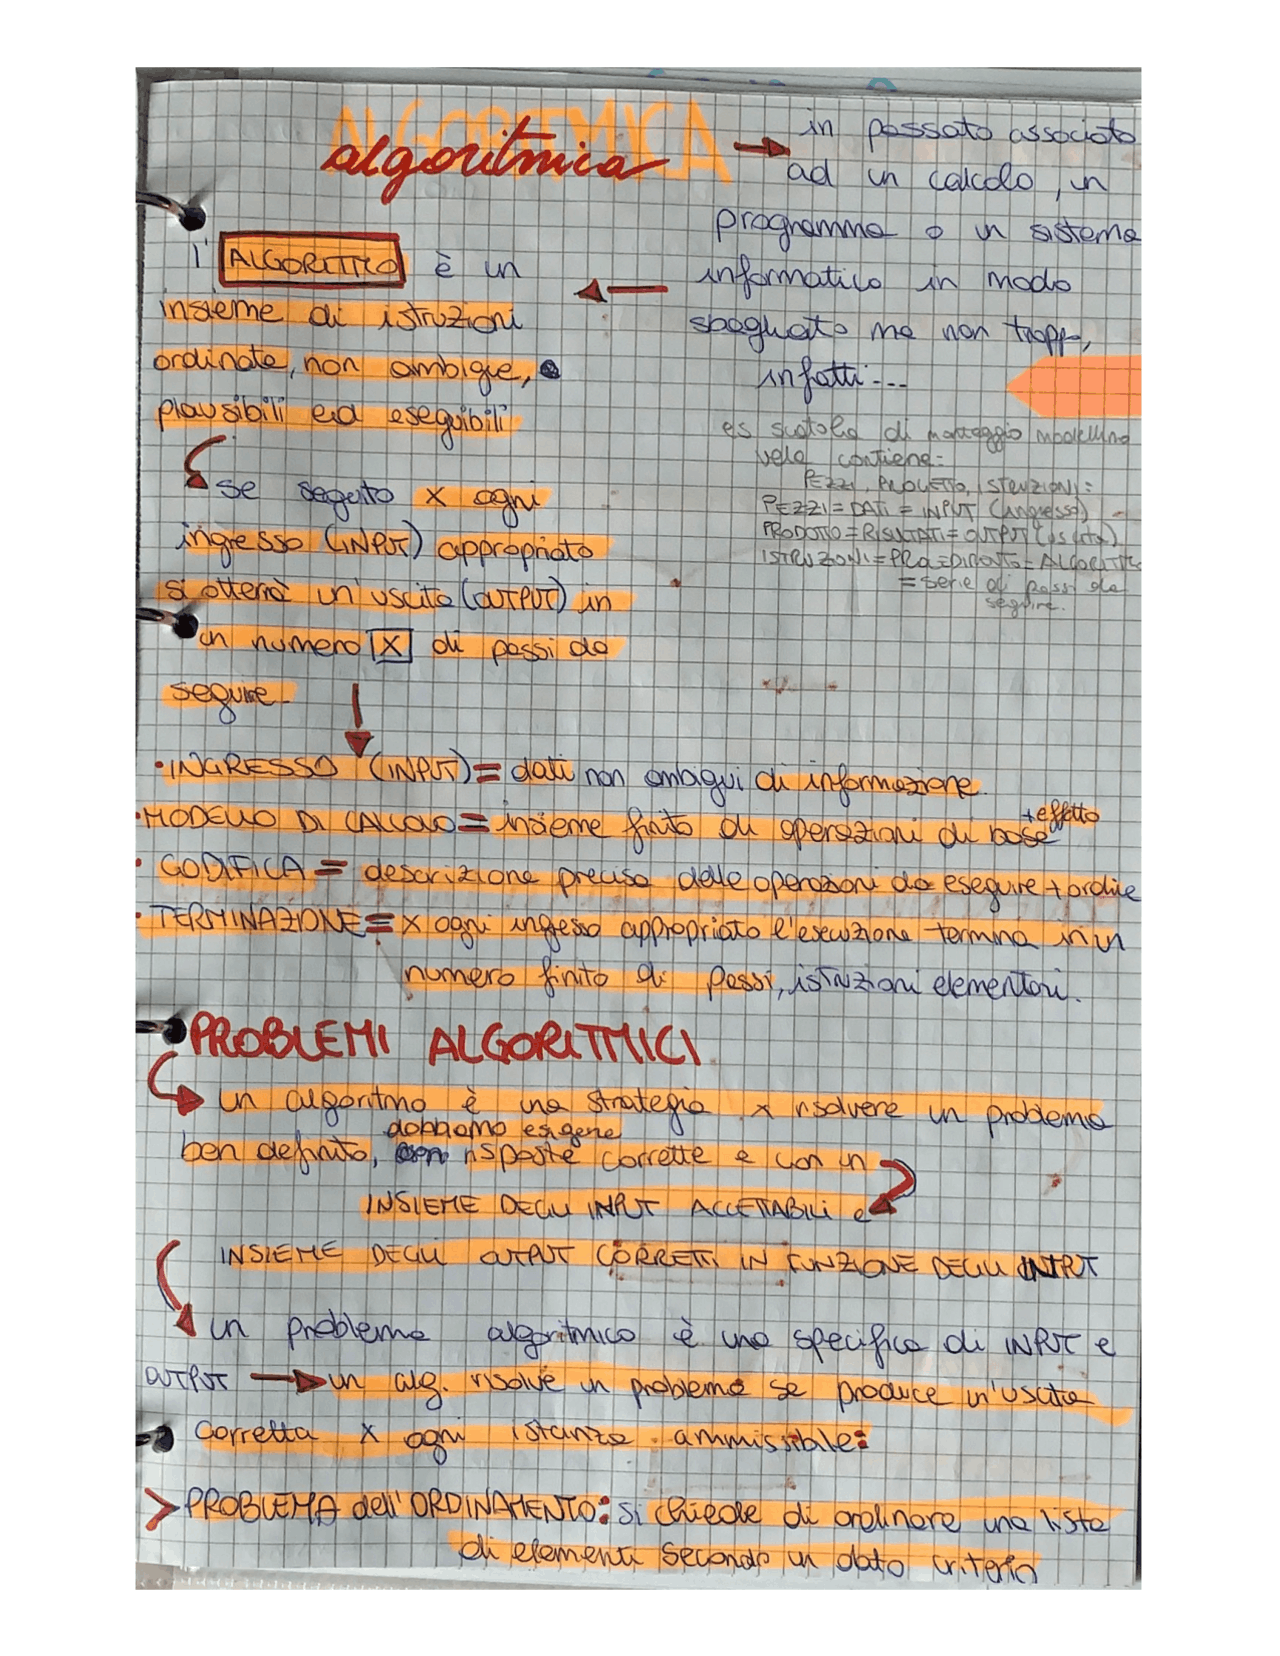 ALGORITMICA
algoritmica
in passato associato
ad un calcolo, un
programma o un sistema
informatico in modo
sbagliato ma non troppo,
infatti...
l' ALGORITMO è un
insieme di istruzioni
ordinate, non ambigue,
plausibili ed eseguibili
es scatola di montaggio modellino
vela contiene:
PEZZI, PROGETTO, ISTRUZIONI:
PEZZI = DATI = INPUT (ingresso)
PRODOTTO = RISULTATI = OUTPUT (uscita)
= serie di passi da
seguire.
se seguito x ogni
ingresso (INPUT) appropriato
si otterrà un'uscita (OUTPUT) in
un numero X di passi da
seguire
• INGRESSO (INPUT) = dati non ambigui di informazione.
• MODELLO DI CALCOLO = insieme finito di operazioni di base + effetto
• CODIFICA = descrizione precisa delle operazioni da eseguire + ordine
• TERMINAZIONE = x ogni ingresso appropriato l'esecuzione termina in un
numero finito di passi, istruzioni elementari.
PROBLEMI ALGORITMICI
un algoritmo è una strategia x risolvere un problema
dobbiamo esigere
ben definito, risposte corrette e con un
INSIEME DEGLI INPUT ACCETTABILI e
INSIEME DEGLI OUTPUT CORRETTI IN FUNZIONE DEGLI INPUT
un problema algoritmico è una specifica di INPUT e
OUTPUT → un alg. risolve un problema se produce un'uscita
corretta x ogni istanza ammissibile:
> PROBLEMA dell'ORDINAMENTO: si chiede di ordinare una lista
di elementi secondo un dato criterio